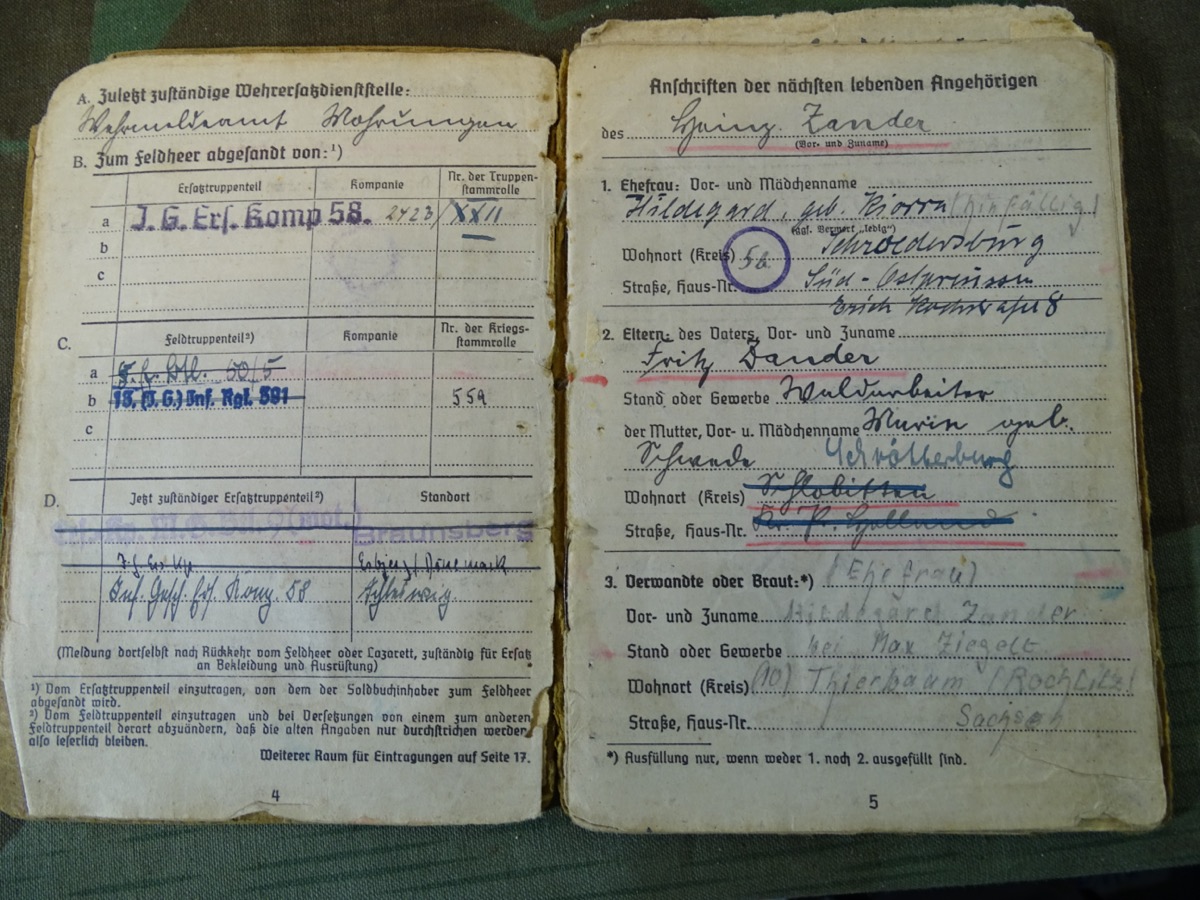 A. Zuletzt zuständige Wehrersatzdienststelle:
Wehrmeldeamt Mohrungen
B. Zum Feldheer abgesandt von:¹)
Ersatztruppenteil Kompanie Nr. der Truppen-
stammrolle
a J. G. Ers. Komp 58. 2423/XXII
b
c
C. Feldtruppenteil²) Kompanie Nr. der Kriegs-
stammrolle
a 50/5
b 13. (J.G.) Inf. Rgt. 391 559
c
D. Jetzt zuständiger Ersatztruppenteil²) Standort
Braunsberg
Esbjerg/Dänemark
Inf. Gesch. Ers. Komp 58 Schleswig.
(Meldung dortselbst nach Rückkehr vom Feldheer oder Lazarett, zuständig für Ersatz
an Bekleidung und Ausrüstung)
¹) Vom Ersatztruppenteil einzutragen, von dem der Soldbuchinhaber zum Feldheer
abgesandt wird.
²) Vom Feldtruppenteil einzutragen und bei Versetzungen von einem zum anderen
Feldtruppenteil derart abzuändern, daß die alten Angaben nur durchstrichen werden,
also leserlich bleiben.
Weiterer Raum für Eintragungen auf Seite 17.
4
Anschriften der nächsten lebenden Angehörigen
des Heinz Zander
(Vor- und Zuname)
1. Ehefrau: Vor- und Mädchenname
Hildegard, geb. Kiorra (hinfällig)
(ggf. Vermerk „ledig“)
Wohnort (Kreis) Schroedersburg
56
Straße, Haus-Nr. Süd-Ostpreussen
Erich Kochstraße 8
2. Eltern: des Vaters, Vor- und Zuname
Fritz Zander
Stand oder Gewerbe Waldarbeiter
der Mutter, Vor- u. Mädchenname Marie geb.
Schwede Schröttersburg
Wohnort (Kreis) Schlobitten
Straße, Haus-Nr. Kr. P. Holland
3. Verwandte oder Braut:*) (Ehefrau)
Vor- und Zuname Hildegard Zander
Stand oder Gewerbe bei Max Ziegelt
Wohnort (Kreis) (10) Thierbaum (Rochlitz)
Straße, Haus-Nr. Sachsen
*) Ausfüllung nur, wenn weder 1. noch 2. ausgefüllt sind.
5